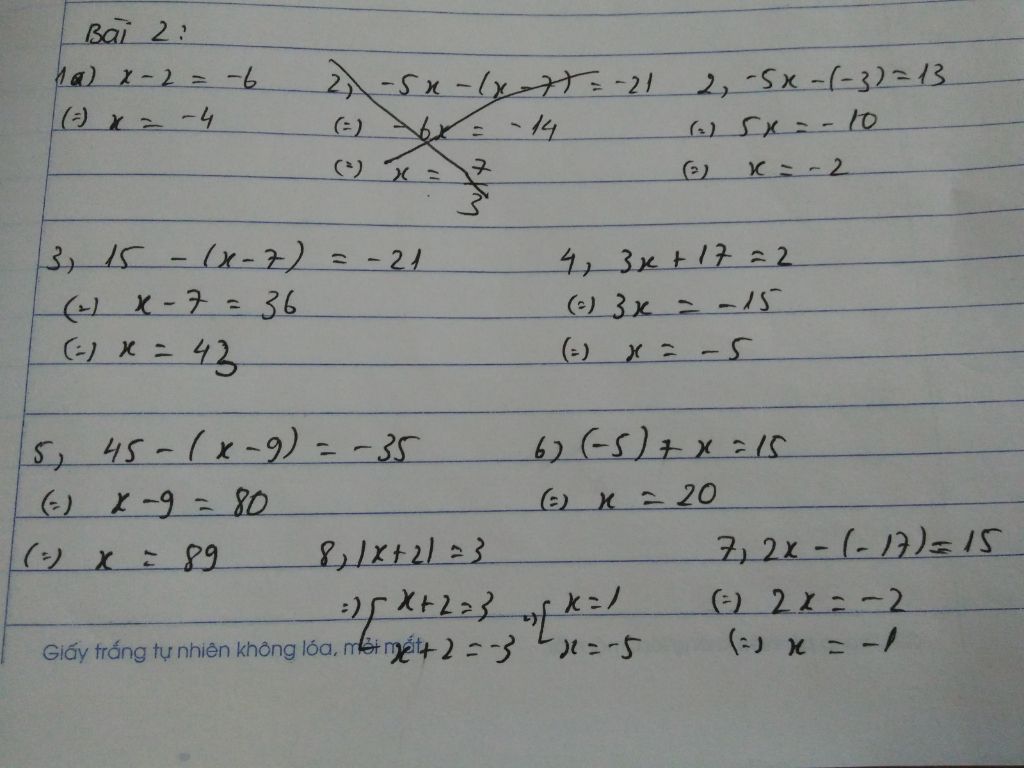 Bài 2:
1a) x - 2 = -6
(=) x = -4
2, -5x - (x - 7) = -21
(=) -6x = -14
(=) x = 7/3
2, -5x - (-3) = 13
(=) 5x = -10
(=) x = -2
3, 15 - (x - 7) = -21
(=) x - 7 = 36
(=) x = 43
4, 3x + 17 = 2
(=) 3x = -15
(=) x = -5
5, 45 - (x - 9) = -35
(=) x - 9 = 80
(=) x = 89
6, (-5) + x = 15
(=) x = 20
8, |x + 2| = 3
=) [ x + 2 = 3 =) [ x = 1
x + 2 = -3 x = -5
7, 2x - (-17) = 15
(=) 2x = -2
(=) x = -1
Giấy trắng tự nhiên không lóa, mỏi mắt